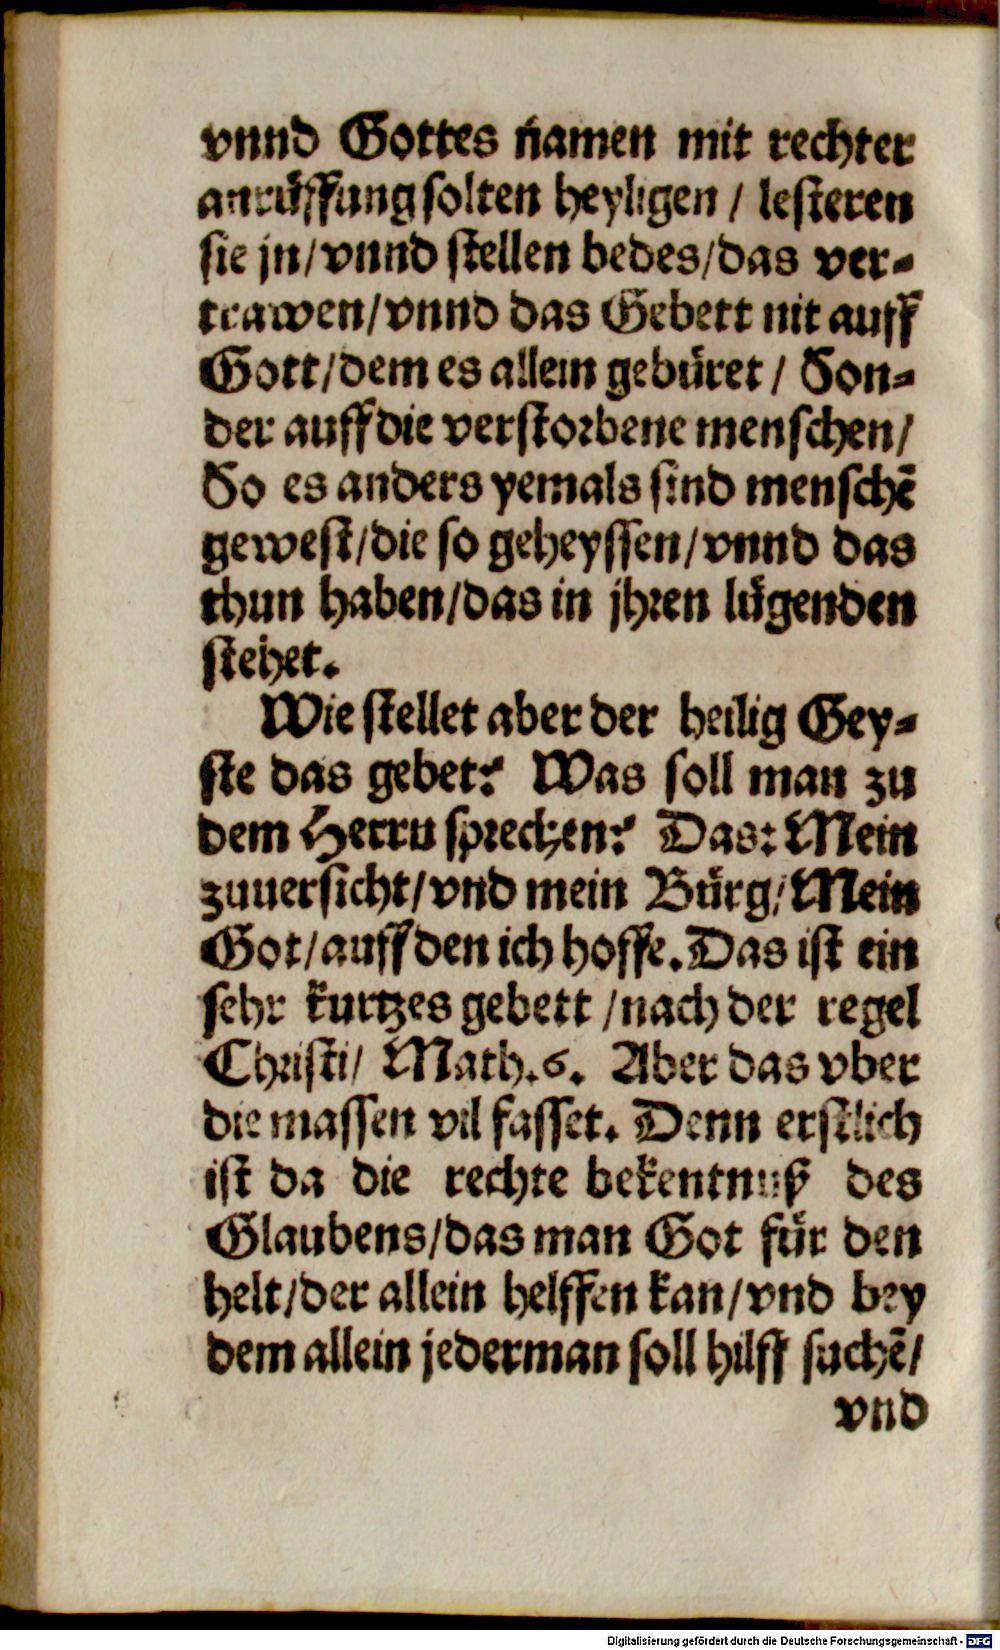 vnnd Gottes namen mit rechter
anrůffung solten heyligen / lesteren
sie jn/vnnd stellen bedes/das ver⸗
trawen/vnnd das Gebett nit auff
Gott/dem es allein gebüret / Son⸗
der auff die verstorbene menschen/
So es anders yemals sind menschē
gewest/die so geheyssen/vnnd das
thun haben/das in jhren lügenden
stehet.
Wie stellet aber der heilig Gey⸗
ste das gebet? Was soll man zu
dem Herrn sprechen? Das: Mein
zuuersicht/vnd mein Bürg/Mein
Got/auff den ich hoffe. Das ist ein
sehr kurtzes gebett /nach der regel
Christi/ Math.6. Aber das vber
die massen vil fasset. Denn erstlich
ist da die rechte bekentnuß des
Glaubens/das man Got für den
helt/der allein helffen kan/vnd bey
dem allein jederman soll hilff suchē/
vnd
Digitalisierung gefördert durch die Deutsche Forschungsgemeinschaft - DFG